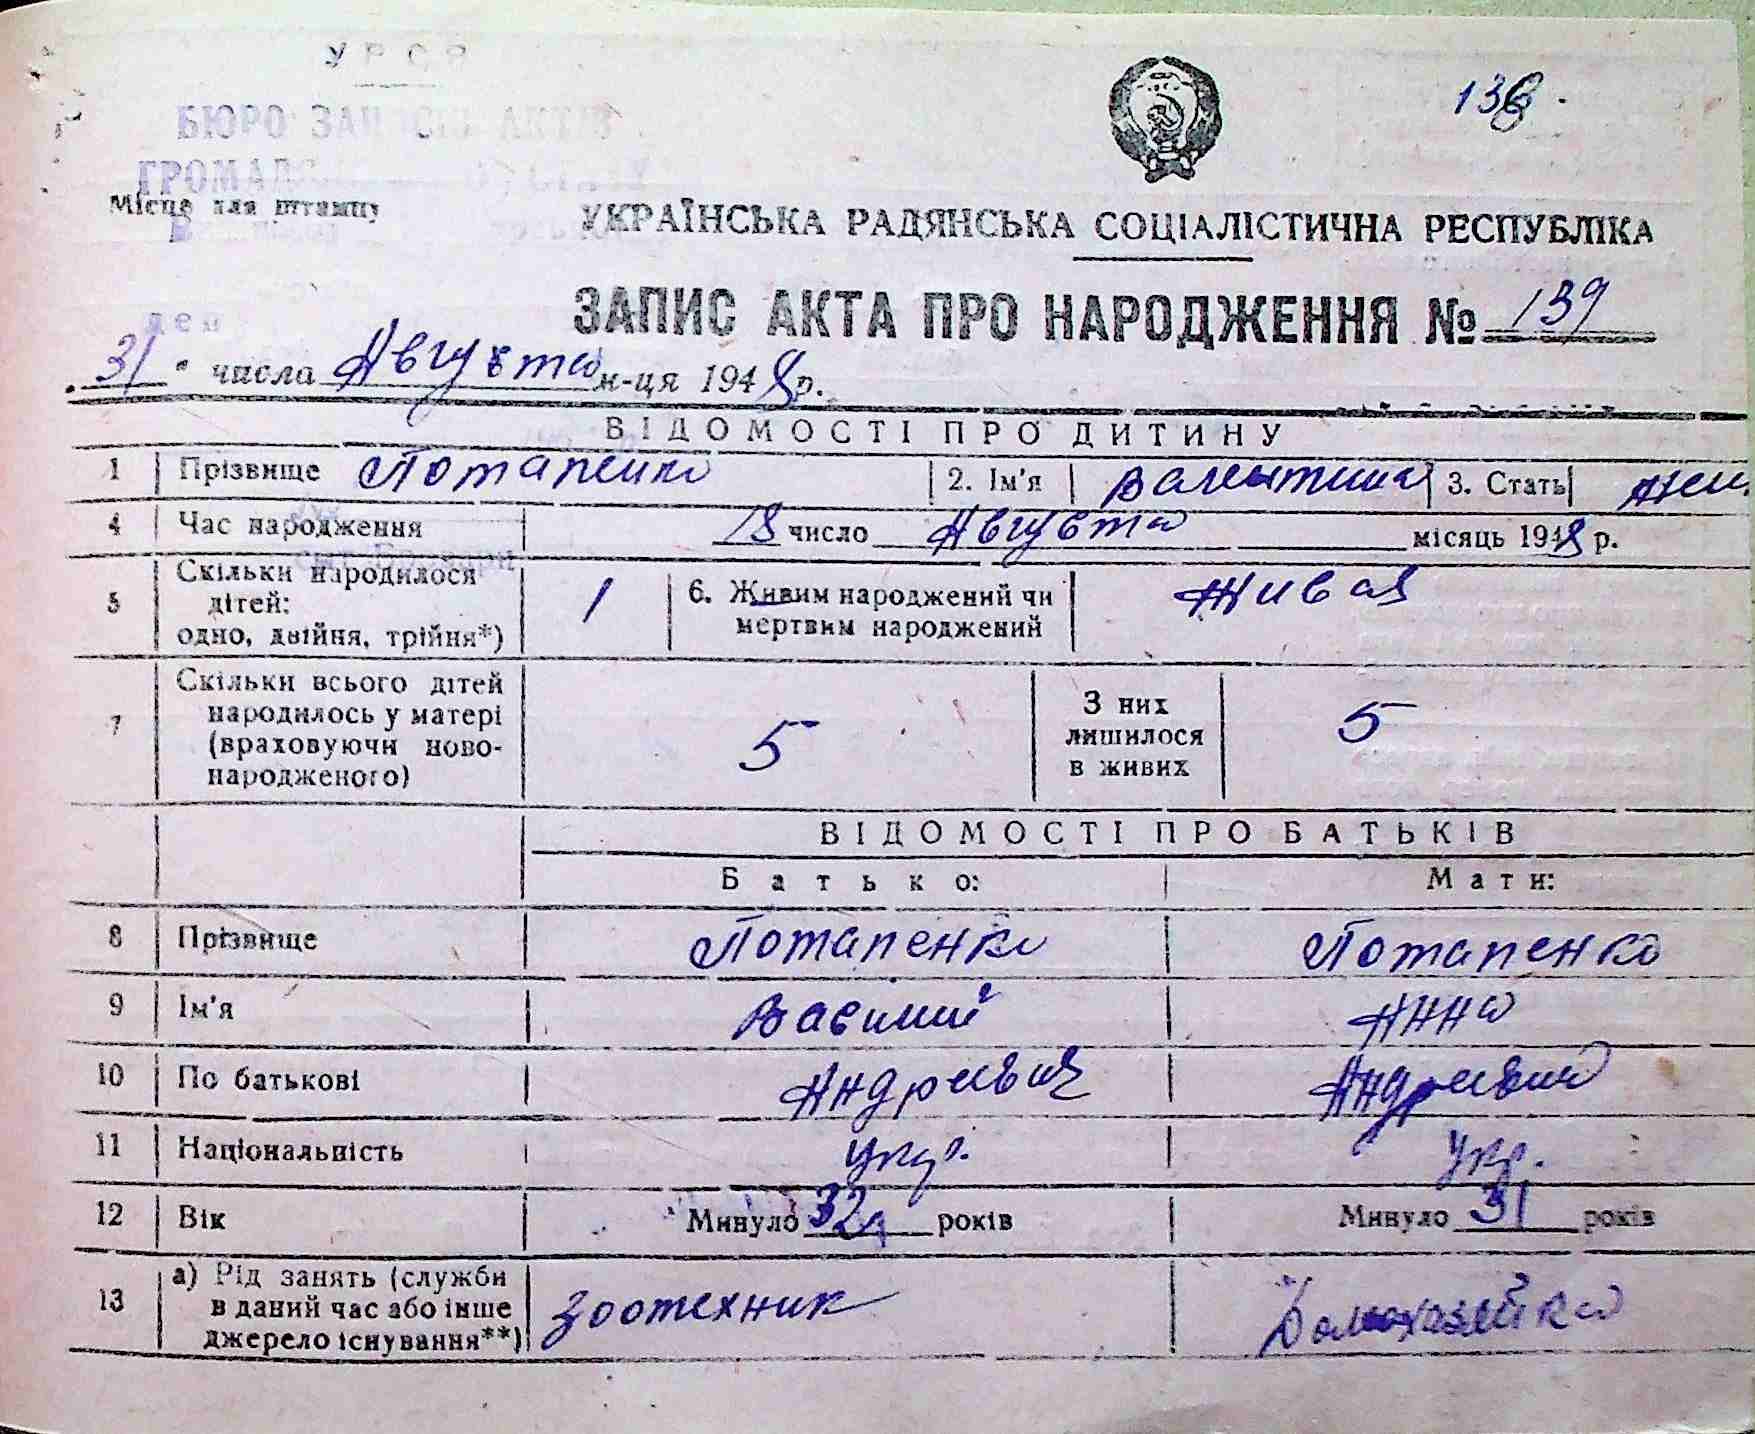 УРСР
138.
БЮРО ЗАПИСІВ АКТІВ
ГРОМАДСЬ
Місце для штампу
УКРАЇНСЬКА РАДЯНСЬКА СОЦІАЛІСТИЧНА РЕСПУБЛІКА
ЗАПИС АКТА ПРО НАРОДЖЕННЯ № 139
"31" числа Августа м-ця 1948 р.
ВІДОМОСТІ ПРО ДИТИНУ
1 Прізвище Потапенко 2. Ім'я Валентина 3. Стать жен.
4 Час народження 18 число Августа місяць 1948 р.
5 Скільки народилося дітей: одно, двійня, трійня*) 1 6. Живим народжений чи мертвим народжений Живая
7 Скільки всього дітей народилось у матері (враховуючи новонародженого) 5 З них лишилося в живих 5
ВІДОМОСТІ ПРО БАТЬКІВ
Батько: Мати:
8 Прізвище Потапенко Потапенко
9 Ім'я Василий Анна
10 По батькові Андреевич Андреевна
11 Національність укр. Укр.
12 Вік Минуло 32 років Минуло 31 років
13 а) Рід занять (служби в даний час або інше джерело існування**) Зоотехник Домохозяйка